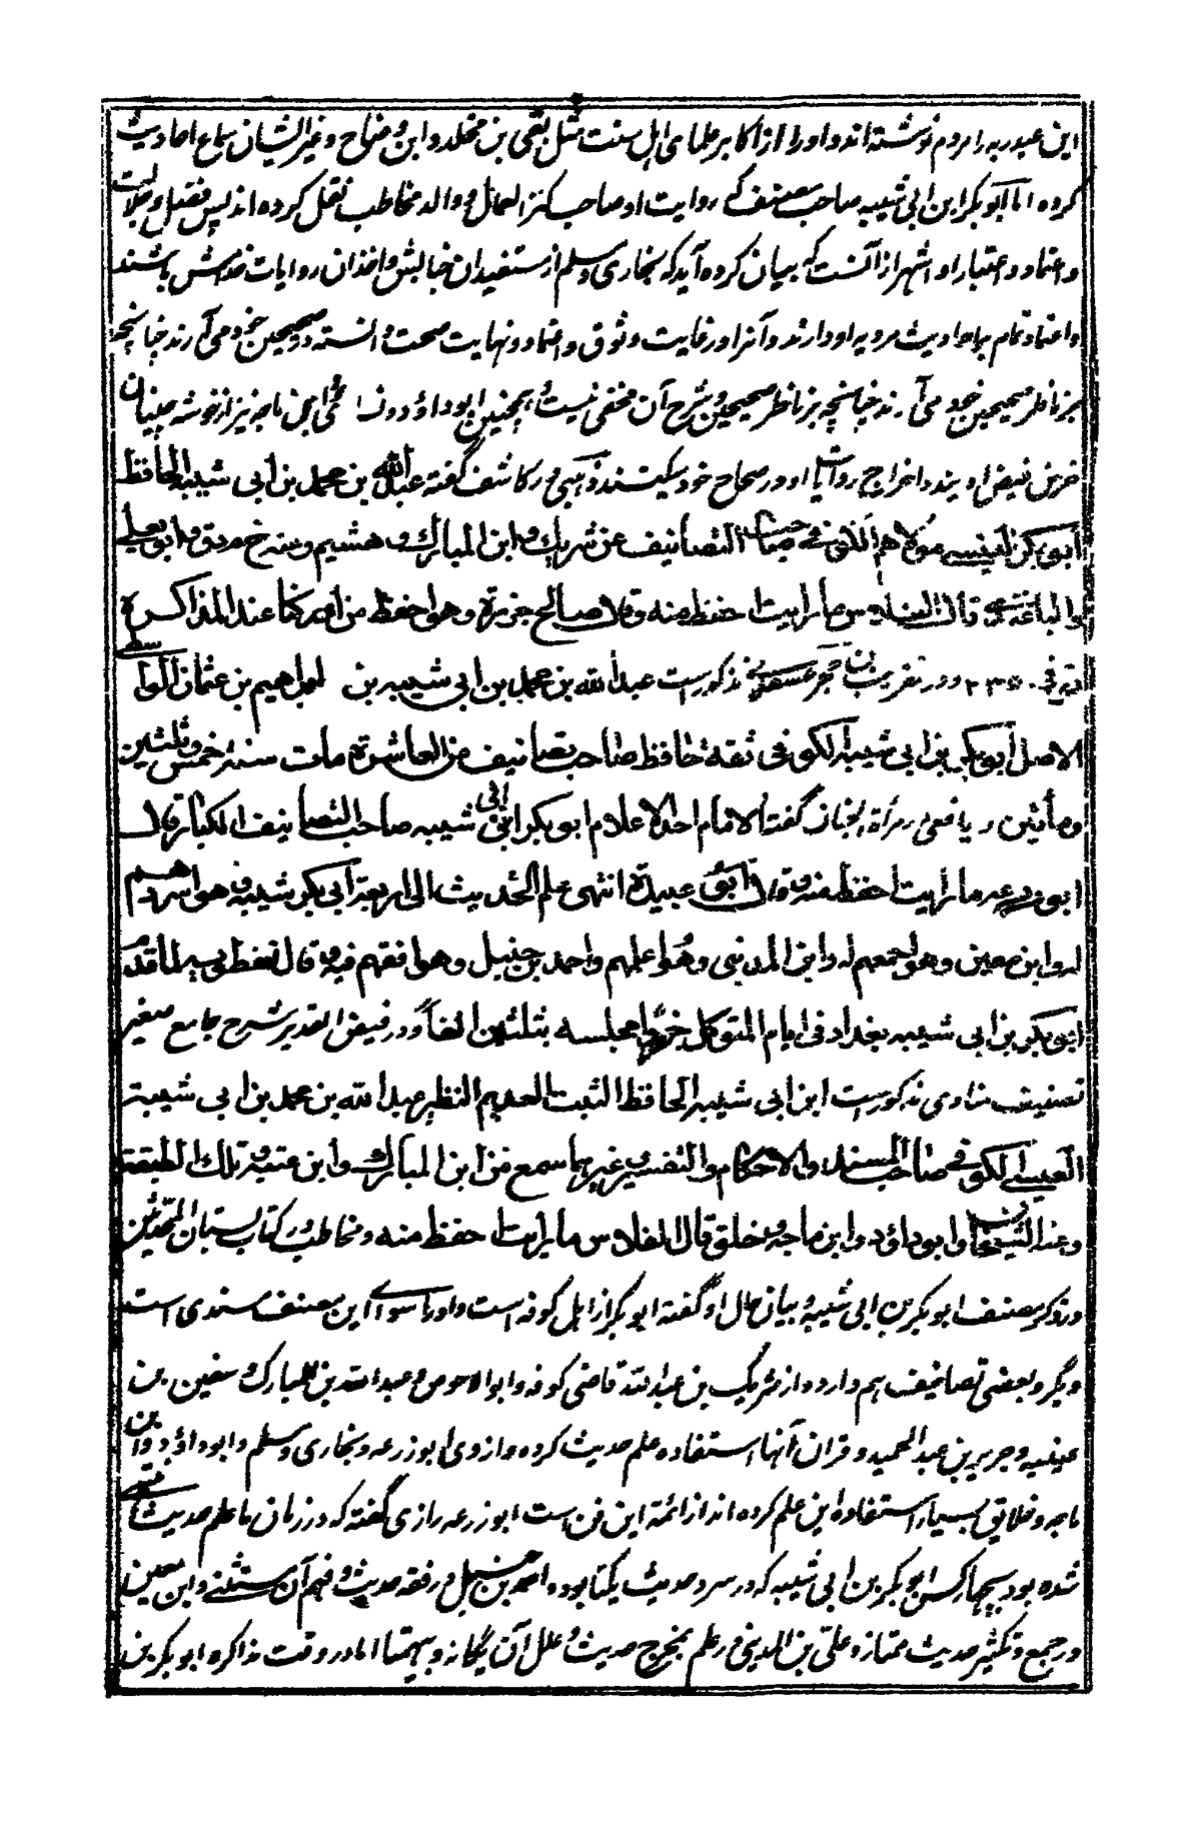 ابن عبدربه را مردم نوشته‌اند و او را از اکابر علمای اهل سنت مثل بقی بن مخلد و ابن وضاح و غیر ایشان سماع احادیث
کرده اما ابوبکر ابن ابی شیبه صاحب مصنف که روایت او صاحب کنز العمال و والد مخاطب نقل کرده‌اند پس فضل و جلالت
و اعتماد و اعتبار او اشهر از آنست که بیان کرده آید که بخاری و مسلم از مستفیدان جنابش و آخذان روایات خدمتش باشند
و اعتماد تمام بر احادیث مرویه او دارند و آنرا در غایت وثوق و اعتماد و نهایت صحت دانسته در صحیحین خود می آرند چنانچه
بر ناظر صحیحین خود می آرند چنانچه بر ناظر صحیحین و شرح آن مخفی نیست و همچنین ابوداؤد و نسائی و ابن ماجه نیز از خوشه چینان
خرمن فیض اویند و اخراج روایات او در صحاح خود میکنند ذهبی در کاشف گفته عبد الله بن محمد بن ابی شیبه الحافظ
ابوبکر العبسی مولاهم الکوفی صاحب التصانیف عن شریک و ابن المبارک و هشیم و عنه خ م د ق و ابو یعلی
والباغندی قال الفلاس ما رایت احفظ منه وقال صالح جزرة وهو احفظ من ادرکنا عند المذاکرة
توفی ۲۳۵ و در تقریب ابن حجر عسقلانی مذکورست عبد الله بن محمد بن ابی شیبه بن ابراهیم بن عثمان الواسطی
الاصل ابوبکر بن ابی شیبه الکوفی ثقة حافظ صاحب تصانیف من العاشرة مات سنة خمس و ثلثین
ومأتین و یافعی در مرآة الجنان گفته الامام احد الاعلام ابوبکر ابن ابی شیبه صاحب التصانیف الکبار قال
ابو زرعه ما رایت احفظ منه وقال ابو عبیدة انتهی علم الحدیث الی اربعة ابی بکر شیبه وهو اسردهم
له وابن معین وهو اجمعهم له وابن المدینی وهو اعلمهم واحمد بن حنبل وهو افقهم فیه وقال نفطویه لما قدم
ابوبکر بن ابی شیبه بغداد فی ایام المتوکل حزروا مجلسه بثلثین الفاً و در فیض القدیر شرح جامع صغیر
تصنیف مناوی مذکورست ابن ابی شیبه الحافظ الثبت العدیم النظیر عبد الله بن محمد بن ابی شیبة
العبسی الکوفی صاحب المسند والاحکام والتفسیر وغیرها سمع من ابن المبارک وابن عیینه وتلک الطبقة
وعنه الشیخان وابوداؤد وابن ماجه وخلق قال الفلاس ما رایت احفظ منه و مخاطب در کتاب بستان المحدثین
در ذکر مصنف ابوبکر بن ابی شیبه و بیان حال او گفته ابوبکر از اهل کوفه است و او را سوای این مصنف مسندی است
دیگر و بعضی تصانیف هم دارد و از شریک بن عبد الله قاضی کوفه و ابو الاحوص و عبد الله بن المبارک و سفین بن
عیینه و جریر بن عبد الحمید و قران آنها استفاده علم حدیث کرده و از وی ابو زرعه و بخاری و مسلم و ابو داؤد و ابن
ماجه و خلایق بسیار استفاده این علم کرده‌اند از ائمة این فن است ابو زرعه رازی گفته که در زمان ما علم حدیث منتهی
شده بود بچهار کس ابو بکر بن ابی شیبه که در سرد حدیث یکتا بود و احمد بن حنبل در فقه حدیث و فهم آن مستثنی و ابن معین
در جمع و تکثیر حدیث ممتاز و علی بن المدینی در علم بمخرج حدیث و علل آن یگانه و بیهمتا اما در وقت مذاکره ابو بکر بن